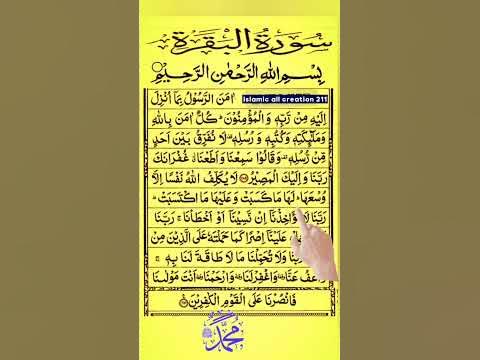 سورة البقرة
بِسْمِ اللهِ الرَّحْمٰنِ الرَّحِيْمِ
اٰمَنَ الرَّسُوْلُ بِمَآ اُنْزِلَ
Islamic all creation 211
اِلَيْهِ مِنْ رَّبِّهٖ وَالْمُؤْمِنُوْنَ ؕ كُلٌّ اٰمَنَ بِاللهِ
وَمَلٰٓئِكَتِهٖ وَكُتُبِهٖ وَرُسُلِهٖ ۫ لَا نُفَرِّقُ بَيْنَ اَحَدٍ
مِّنْ رُّسُلِهٖ ۫ وَقَالُوْا سَمِعْنَا وَاَطَعْنَا ۫ غُفْرَانَكَ
رَبَّنَا وَاِلَيْكَ الْمَصِيْرُ لَا يُكَلِّفُ اللهُ نَفْسًا اِلَّا
وُسْعَهَا ؕ لَهَا مَا كَسَبَتْ وَعَلَيْهَا مَا اكْتَسَبَتْ ؕ
رَبَّنَا لَا تُؤَاخِذْنَآ اِنْ نَّسِيْنَآ اَوْ اَخْطَاْنَا ۚ رَبَّنَا
عَلَيْنَآ اِصْرًا كَمَا حَمَلْتَهٗ عَلَى الَّذِيْنَ مِنْ
وَلَا تُحَمِّلْنَا مَا لَا طَاقَةَ لَنَا بِهٖ ۚ
وَاعْفُ عَنَّا ۥ وَاغْفِرْ لَنَا ۥ وَارْحَمْنَا ۥ اَنْتَ مَوْلٰىنَا
فَانْصُرْنَا عَلَى الْقَوْمِ الْكٰفِرِيْنَ
محمد